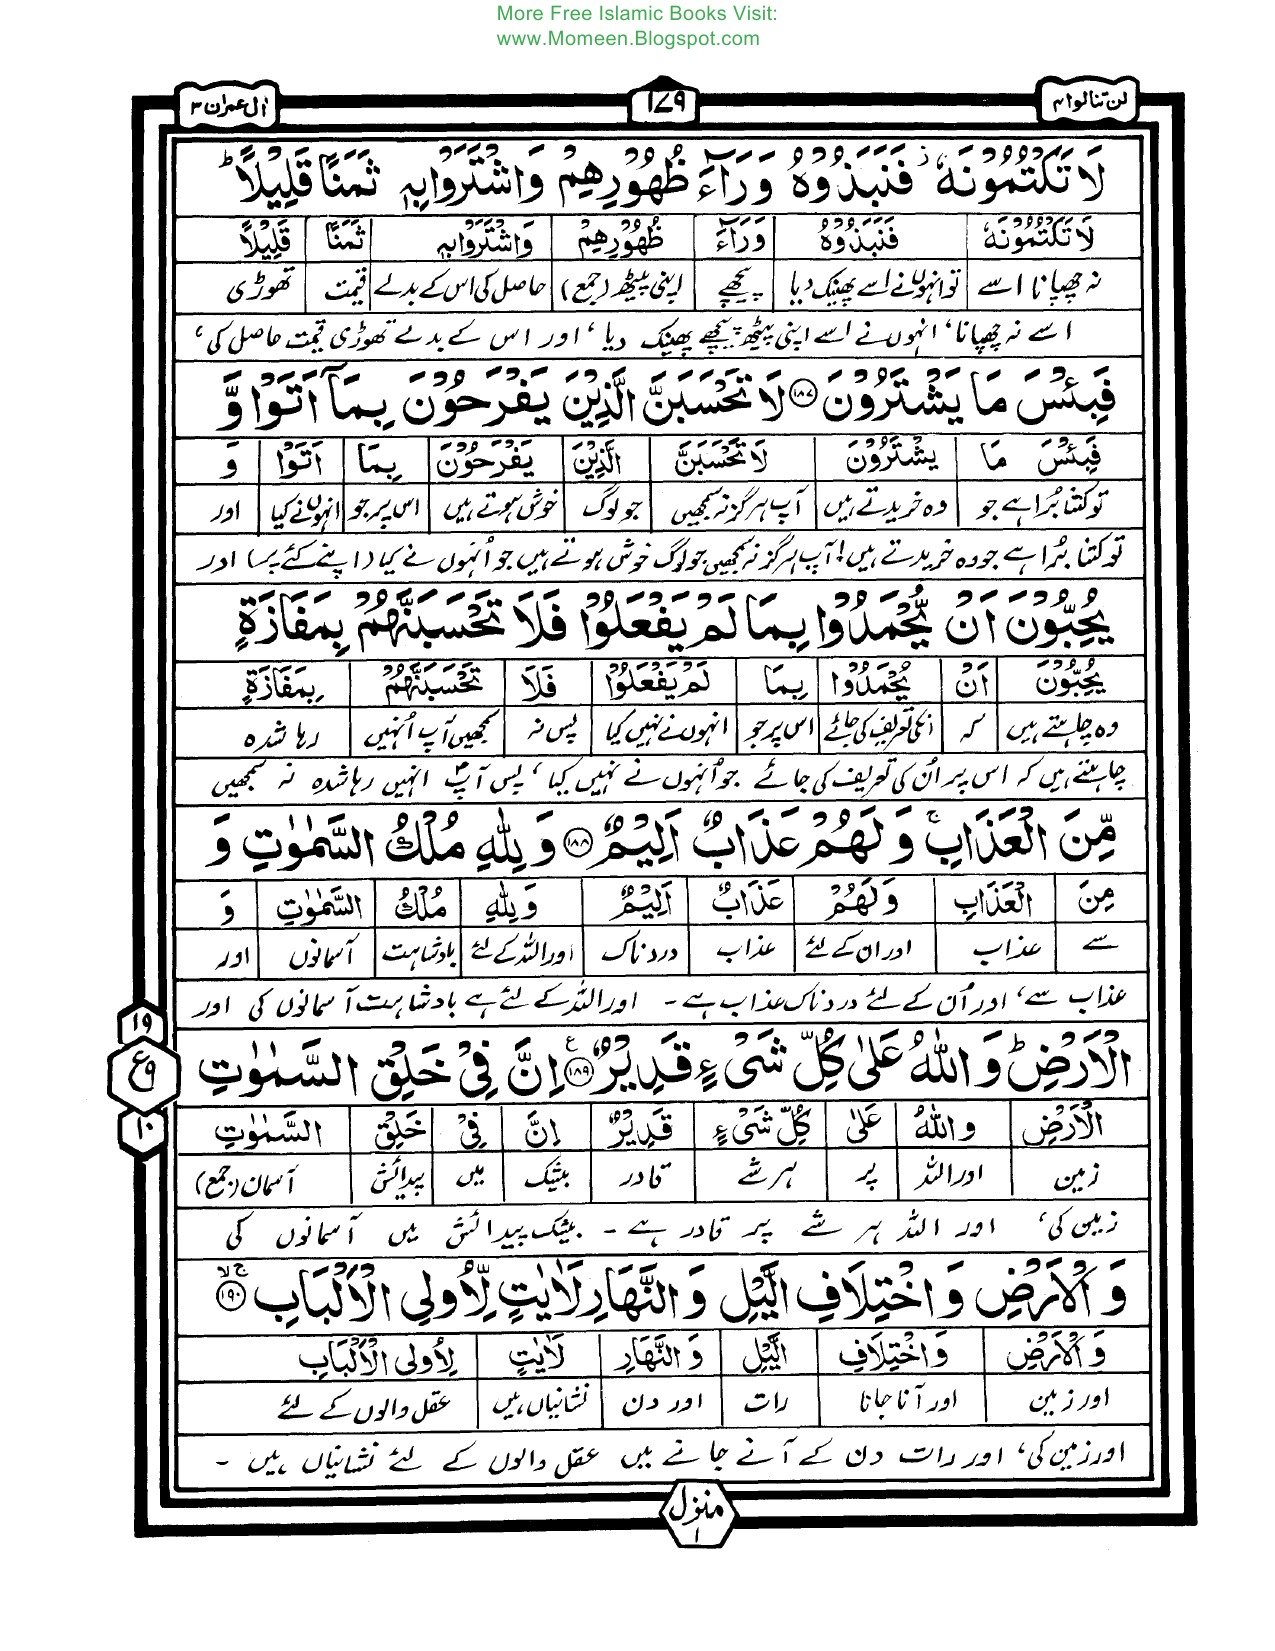 More Free Islamic Books Visit:
www.Momeen.Blogspot.com
لن تنالوا ۴ ۱۷۹ اٰل عمران ۳
لَا تَكْتُمُوْنَهٗ ۫ فَنَبَذُوْهُ وَرَآءَ ظُهُوْرِهِمْ وَاشْتَرَوْا بِهٖ ثَمَنًا قَلِيْلًا ؕ
لَا تَكْتُمُوْنَهٗ فَنَبَذُوْهُ وَرَآءَ ظُهُوْرِهِمْ وَاشْتَرَوْا بِهٖ ثَمَنًا قَلِيْلًا
نہ چھپانا اسے تو انہوں نے اسے پھینک دیا پیچھے اپنی پیٹھ (جمع) حاصل کی اس کے بدلے قیمت تھوڑی
اسے نہ چھپانا، انہوں نے اسے اپنی پیٹھ پیچھے پھینک دیا، اور اس کے بدلے تھوڑی قیمت حاصل کی،
فَبِئْسَ مَا يَشْتَرُوْنَ ۱۸۷ لَا تَحْسَبَنَّ الَّذِيْنَ يَفْرَحُوْنَ بِمَآ اَتَوْا وَّ
فَبِئْسَ مَا يَشْتَرُوْنَ لَا تَحْسَبَنَّ الَّذِيْنَ يَفْرَحُوْنَ بِمَا اَتَوْا وَ
تو کتنا بُرا ہے جو وہ خریدتے ہیں آپ ہرگز نہ سمجھیں جو لوگ خوش ہوتے ہیں اس پر جو انہوں نے کیا اور
تو کتنا بُرا ہے جو وہ خریدتے ہیں! آپ ہرگز نہ سمجھیں جو لوگ خوش ہوتے ہیں جو اُنہوں نے کیا (اپنے کئے پر) اور
يُحِبُّوْنَ اَنْ يُّحْمَدُوْا بِمَا لَمْ يَفْعَلُوْا فَلَا تَحْسَبَنَّهُمْ بِمَفَازَةٍ
يُحِبُّوْنَ اَنْ يُّحْمَدُوْا بِمَا لَمْ يَفْعَلُوْا فَلَا تَحْسَبَنَّهُمْ بِمَفَازَةٍ
وہ چاہتے ہیں کہ انکی تعریف کی جائے اس پر جو انہوں نے نہیں کیا پس نہ سمجھیں آپ اُنہیں رہا شدہ
چاہتے ہیں کہ اس پر اُن کی تعریف کی جائے جو اُنہوں نے نہیں کیا، پس آپؐ انہیں رہا شدہ نہ سمجھیں
مِّنَ الْعَذَابِ ۚ وَلَهُمْ عَذَابٌ اَلِيْمٌ ۱۸۸ وَلِلّٰهِ مُلْكُ السَّمٰوٰتِ وَ
مِنَ الْعَذَابِ وَلَهُمْ عَذَابٌ اَلِيْمٌ وَلِلّٰهِ مُلْكُ السَّمٰوٰتِ وَ
سے عذاب اور ان کے لئے عذاب دردناک اور اللہ کے لئے بادشاہت آسمانوں اور
عذاب سے، اور اُن کے لئے دردناک عذاب ہے۔ اور اللہ کے لئے ہے بادشاہت آسمانوں کی اور
الْاَرْضِ ؕ وَاللّٰهُ عَلٰى كُلِّ شَىْءٍ قَدِيْرٌ ۱۸۹ ع اِنَّ فِىْ خَلْقِ السَّمٰوٰتِ
۱۹
ع ۹
۱۰
الْاَرْضِ وَاللّٰهُ عَلٰى كُلِّ شَىْءٍ قَدِيْرٌ اِنَّ فِىْ خَلْقِ السَّمٰوٰتِ
زمین اور اللہ پر ہر شے قادر بیشک میں پیدائش آسمان (جمع)
زمین کی، اور اللہ ہر شے پر قادر ہے۔ بیشک پیدائش میں آسمانوں کی
وَالْاَرْضِ وَاخْتِلَافِ الَّيْلِ وَالنَّهَارِ لَاٰيٰتٍ لِّاُولِى الْاَلْبَابِ ۱۹۰ ۚۙ
وَالْاَرْضِ وَاخْتِلَافِ الَّيْلِ وَالنَّهَارِ لَاٰيٰتٍ لِاُولِى الْاَلْبَابِ
اور زمین اور آنا جانا رات اور دن نشانیاں ہیں عقل والوں کے لئے
اور زمین کی، اور رات دن کے آنے جانے میں عقل والوں کے لئے نشانیاں ہیں۔
منزل ۱